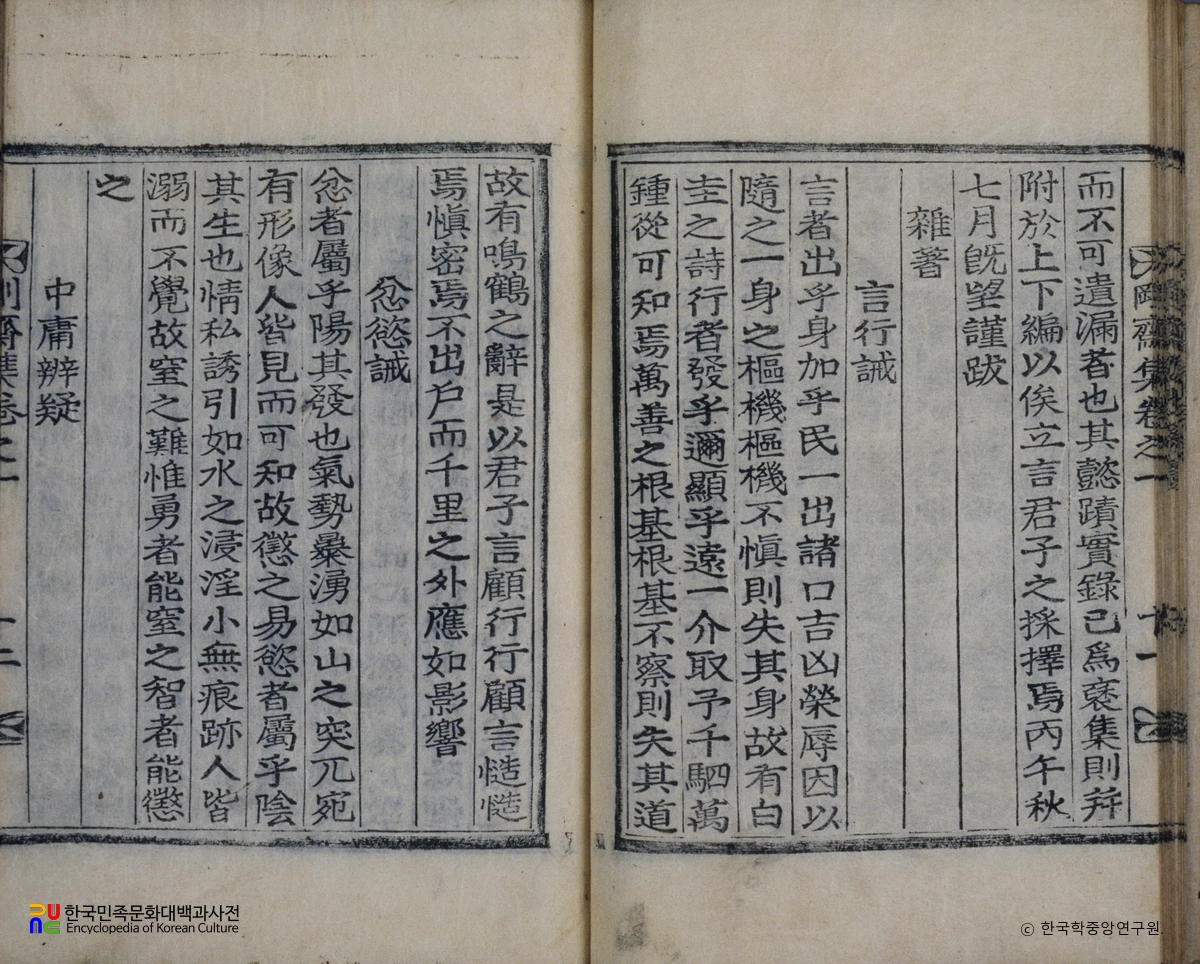 而不可遺漏者也其懿蹟實錄已爲裒集則幷
附於上下編以俟立言君子之採擇焉丙午秋
七月旣望謹跋
雜著
言行誡
言者出乎身加乎民一出諸口吉凶榮辱因以
隨之一身之樞機樞機不愼則失其身故有白
圭之詩行者發乎邇顯乎遠一介取予千駟萬
鍾從可知焉萬善之根基根基不察則失其道
故有鳴鶴之辭是以君子言顧行行顧言慥慥
焉愼密焉不出戶而千里之外應如影響
忿慾誡
忿者屬乎陽其發也氣勢暴湧如山之突兀宛
有形像人皆見而可知故懲之易慾者屬乎陰
其生也情私誘引如水之浸淫小無痕跡人皆
溺而不覺故窒之難惟勇者能窒之智者能懲
之
中庸辨疑
齋集卷之一
十一
齋集卷之一
十二
한국민족문화대백과사전
Encyclopedia of Korean Culture
ⓒ 한국학중앙연구원